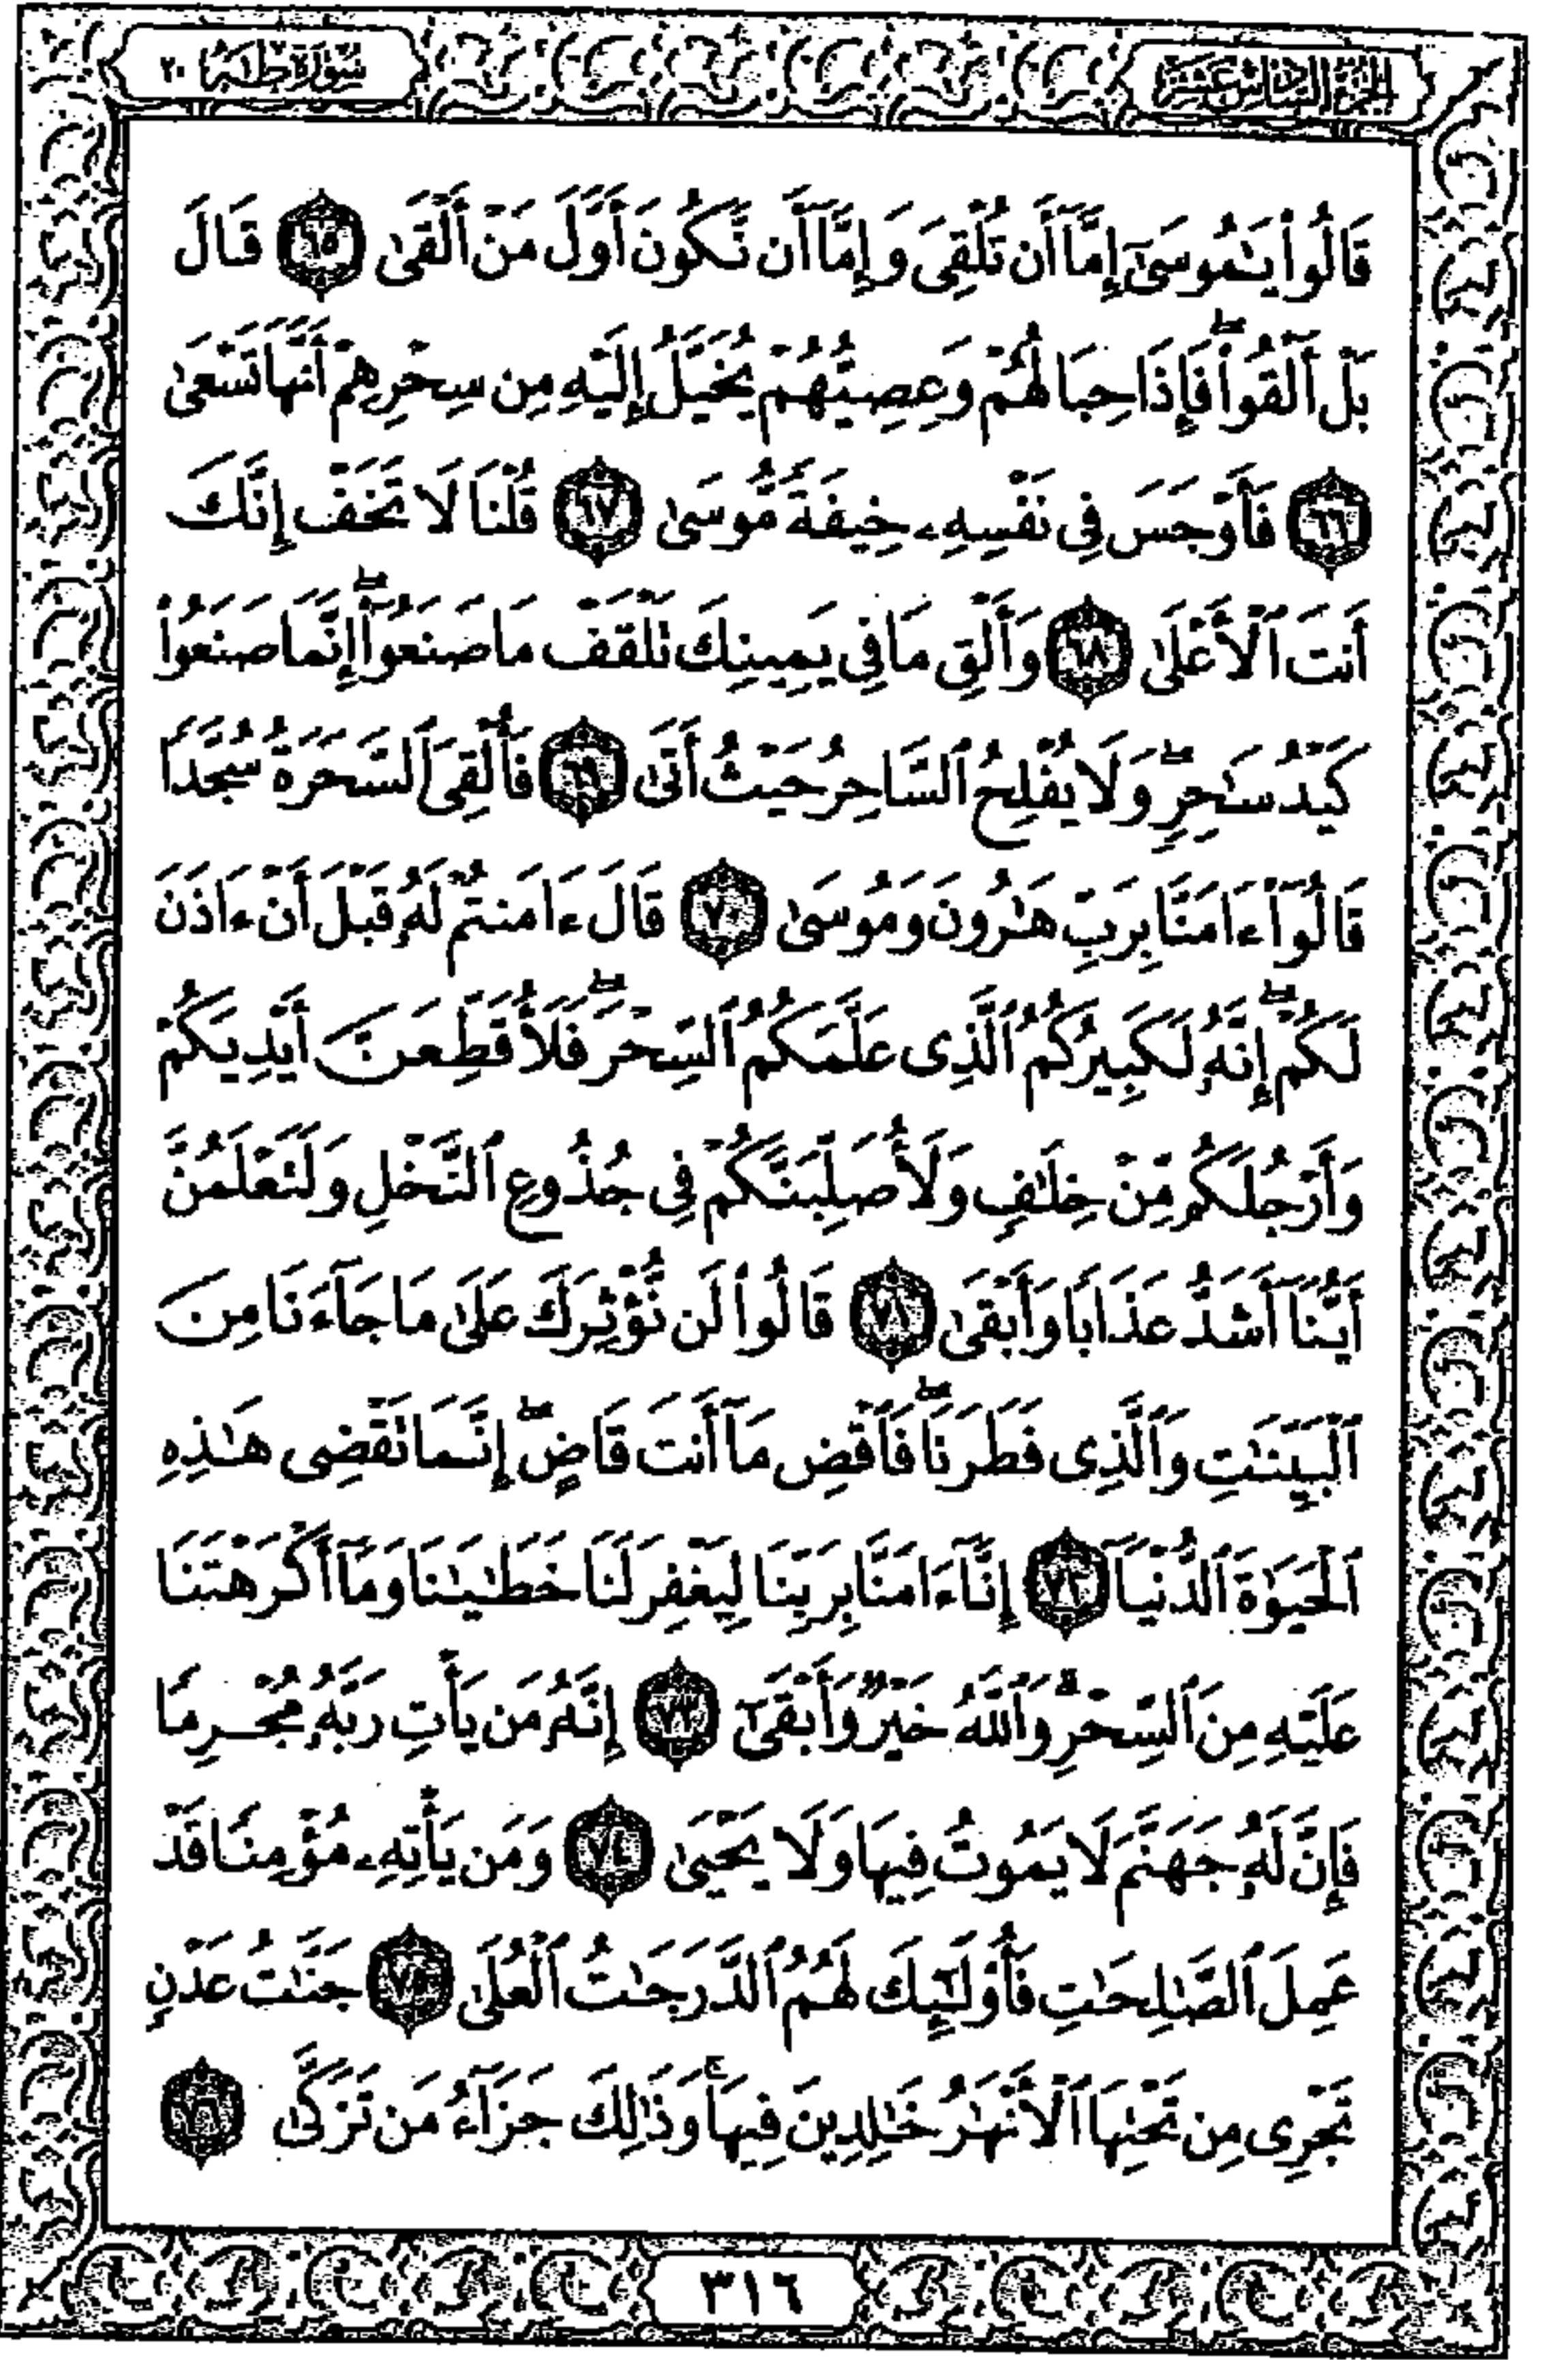 الجزء السادس عشر
سورة طه ٢٠
قَالُوا۟ يَـٰمُوسَىٰٓ إِمَّآ أَن تُلْقِىَ وَإِمَّآ أَن نَّكُونَ أَوَّلَ مَنْ أَلْقَىٰ ٦٥ قَالَ
بَلْ أَلْقُوا۟ ۖ فَإِذَا حِبَالُهُمْ وَعِصِيُّهُمْ يُخَيَّلُ إِلَيْهِ مِن سِحْرِهِمْ أَنَّهَا تَسْعَىٰ
٦٦ فَأَوْجَسَ فِى نَفْسِهِۦ خِيفَةً مُّوسَىٰ ٦٧ قُلْنَا لَا تَخَفْ إِنَّكَ
أَنتَ ٱلْأَعْلَىٰ ٦٨ وَأَلْقِ مَا فِى يَمِينِكَ تَلْقَفْ مَا صَنَعُوٓا۟ ۖ إِنَّمَا صَنَعُوا۟
كَيْدُ سَـٰحِرٍ ۖ وَلَا يُفْلِحُ ٱلسَّاحِرُ حَيْثُ أَتَىٰ ٦٩ فَأُلْقِىَ ٱلسَّحَرَةُ سُجَّدًا
قَالُوٓا۟ ءَامَنَّا بِرَبِّ هَـٰرُونَ وَمُوسَىٰ ٧٠ قَالَ ءَامَنتُمْ لَهُۥ قَبْلَ أَنْ ءَاذَنَ
لَكُمْ ۖ إِنَّهُۥ لَكَبِيرُكُمُ ٱلَّذِى عَلَّمَكُمُ ٱلسِّحْرَ ۖ فَلَأُقَطِّعَنَّ أَيْدِيَكُمْ
وَأَرْجُلَكُم مِّنْ خِلَـٰفٍ وَلَأُصَلِّبَنَّكُمْ فِى جُذُوعِ ٱلنَّخْلِ وَلَتَعْلَمُنَّ
أَيُّنَآ أَشَدُّ عَذَابًا وَأَبْقَىٰ ٧١ قَالُوا۟ لَن نُّؤْثِرَكَ عَلَىٰ مَا جَآءَنَا مِنَ
ٱلْبَيِّنَـٰتِ وَٱلَّذِى فَطَرَنَا ۖ فَٱقْضِ مَآ أَنتَ قَاضٍ ۖ إِنَّمَا تَقْضِى هَـٰذِهِ
ٱلْحَيَوٰةَ ٱلدُّنْيَآ ٧٢ إِنَّآ ءَامَنَّا بِرَبِّنَا لِيَغْفِرَ لَنَا خَطَـٰيَـٰنَا وَمَآ أَكْرَهْتَنَا
عَلَيْهِ مِنَ ٱلسِّحْرِ ۗ وَٱللَّهُ خَيْرٌ وَأَبْقَىٰٓ ٧٣ إِنَّهُۥ مَن يَأْتِ رَبَّهُۥ مُجْرِمًا
فَإِنَّ لَهُۥ جَهَنَّمَ لَا يَمُوتُ فِيهَا وَلَا يَحْيَىٰ ٧٤ وَمَن يَأْتِهِۦ مُؤْمِنًا قَدْ
عَمِلَ ٱلصَّـٰلِحَـٰتِ فَأُو۟لَـٰٓئِكَ لَهُمُ ٱلدَّرَجَـٰتُ ٱلْعُلَىٰ ٧٥ جَنَّـٰتُ عَدْنٍ
تَجْرِى مِن تَحْتِهَا ٱلْأَنْهَـٰرُ خَـٰلِدِينَ فِيهَا ۚ وَذَٰلِكَ جَزَآءُ مَن تَزَكَّىٰ ٧٦
٣١٦